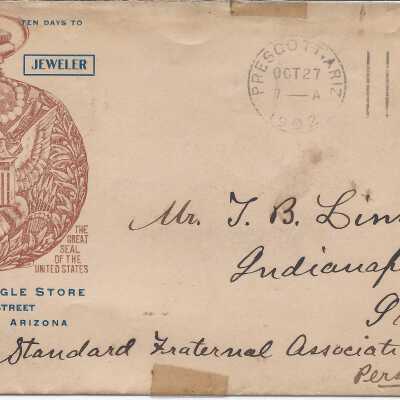 TEN DAYS TO
JEWELER
PRESCOTT, ARIZ
OCT 27
7—A
1902
THE
GREAT
SEAL
OF THE
UNITED STATES
GLE STORE
STREET
ARIZONA
Mr. T. B. Lin
Indianap
Standard Fraternal Associati
Pers